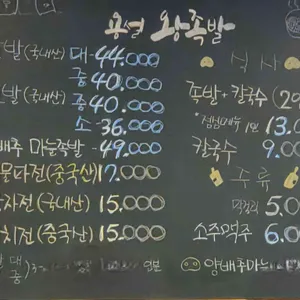 왕족발
발(국내산) 대-44.000
중40.000
발(국내산) 중40.000
소-36.000
배추 마늘족발-49.000
물파전(중국산)17.000
자전(국내산) 15.000
치전(중국산) 15.000
대
중
식사
족발+칼국수(2인
13.0
칼국수 9.00
주류
막걸리 5.0
소주맥주 6.00
양배추마늘